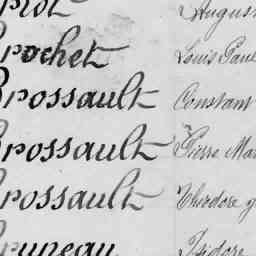 rochet Louis Paul
rossault Constant
rossault Pierre Mar
rossault Théodore
runeau Isidore